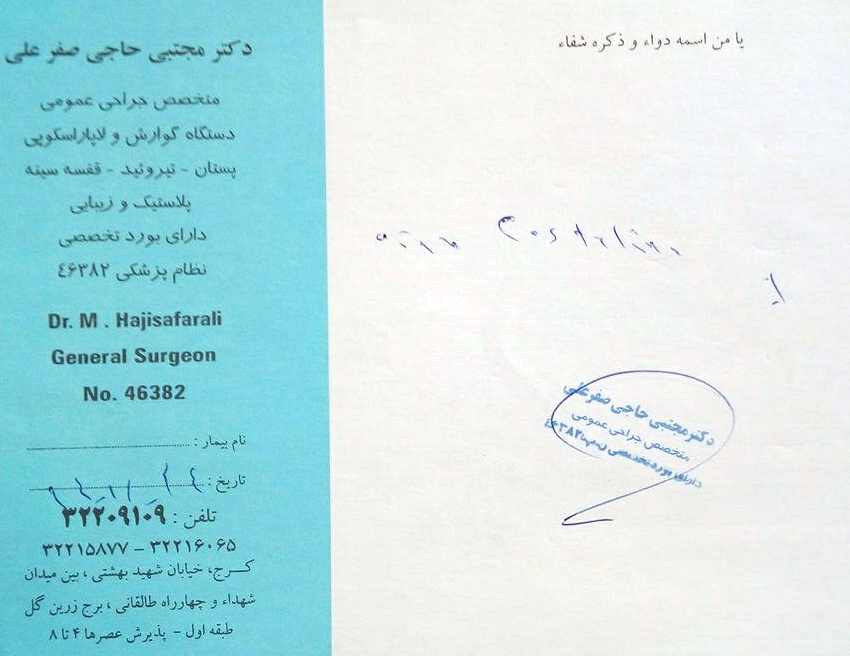 یا من اسمه دواء و ذکره شفاء
دکتر مجتبی حاجی صفر علی
متخصص جراحی عمومی
دستگاه گوارش و لاپاراسکوپی
پستان - تیروئید - قفسه سینه
پلاستیک و زیبایی
دارای بورد تخصصی
نظام پزشکی ٤۶۳۸۲
Dr. M . Hajisafarali
General Surgeon
No. 46382
نام بیمار :
تاریخ :
تلفن : ۳۲۲۰۹۱۰۹
۳۲۲۱۵۸۷۷ – ۳۲۲۱۶۰۶۵
کرج، خیابان شهید بهشتی ، بین میدان
شهداء و چهارراه طالقانی ، برج زرین گل
طبقه اول - پذیرش عصرها ۴ تا ۸
دکتر مجتبی حاجی صفر علی
متخصص جراحی عمومی
دارای بورد تخصصی